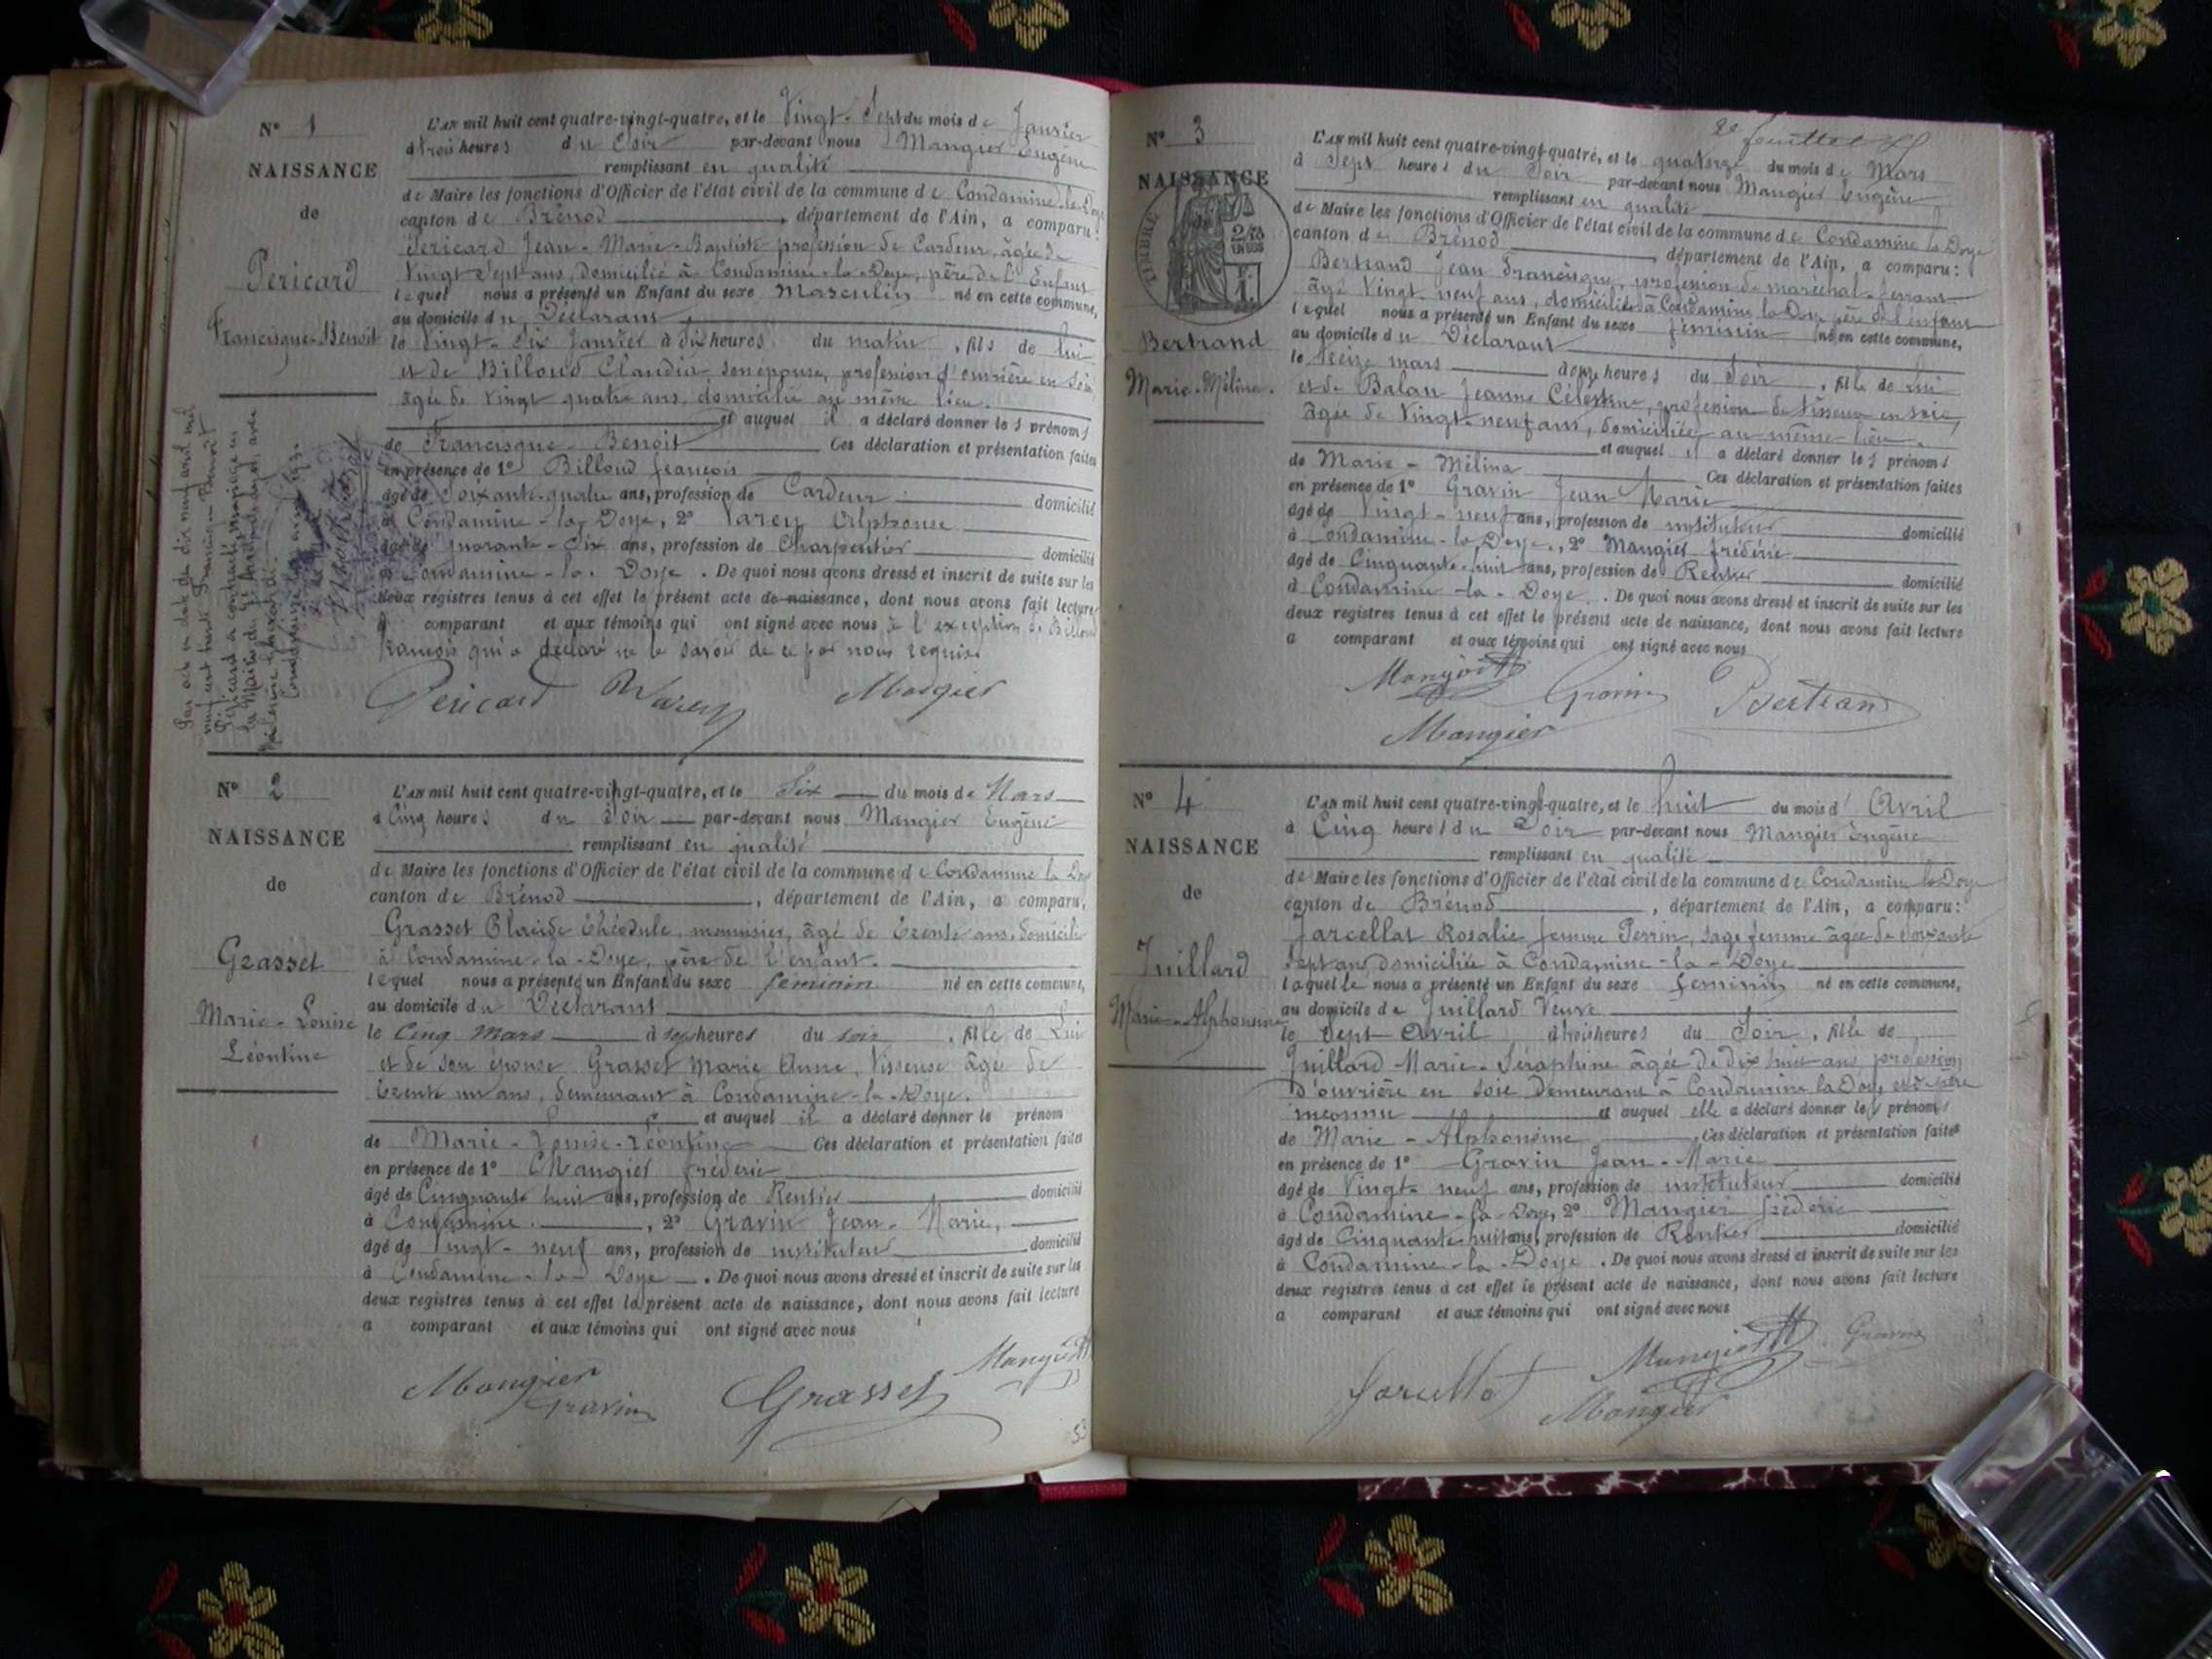 N° 1
NAISSANCE
de
Pericard
Francisque-Benoit
L'AN mil huit cent quatre-vingt-quatre, et le Vingt-Sept du mois de Janvier
à trois heures du Soir par-devant nous Mangier Eugène
remplissant en qualité
de Maire les fonctions d'Officier de l'état civil de la commune de Condamine-la-Doye
canton de Brénod, département de l'Ain, a comparu:
Pericard Jean-Marie-Baptiste profession de Cardeur, âgé de
Vingt Sept ans, domicilié à Condamine-la-Doye, père de l'Enfant
lequel nous a présenté un Enfant du sexe Masculin né en cette commune,
au domicile du Déclarant
le Vingt-Six Janvier à dix heures du matin, fils de lui
et de Billoud Claudia son épouse, profession d'ouvrière en soie
âgée de vingt quatre ans, domicilié au même lieu.
et auquel il a déclaré donner les prénoms
de Francisque Benoit Ces déclaration et présentation faites
en présence de 1° Billoud françois
âgé de Soixante-quatre ans, profession de Cardeur domicilié
à Condamine-la-Doye, 2° Varey Alphonse
âgé de quarante-six ans, profession de Charpentier domicilié
à Condamine-la-Doye. De quoi nous avons dressé et inscrit de suite sur les
deux registres tenus à cet effet le présent acte de naissance, dont nous avons fait lecture
a comparant et aux témoins qui ont signé avec nous à l'exception de Billoud
françois qui a déclaré ne le savoir de ce par nous requis
Pericard Varey Mangier
N° 2
NAISSANCE
de
Grasset
Marie-Louise
Léontine
L'AN mil huit cent quatre-vingt-quatre, et le Six du mois de Mars
à Cinq heures du Soir par-devant nous Mangier Eugène
remplissant en qualité
de Maire les fonctions d'Officier de l'état civil de la commune de Condamine la Doye
canton de Brénod, département de l'Ain, a comparu,
Grasset Placide Théodule, menuisier, âgé de trente ans, domicilié
à Condamine-la-Doye, père de l'enfant.
lequel nous a présenté un Enfant du sexe féminin né en cette commune,
au domicile du Déclarant
le Cinq Mars à sept heures du soir, fille de Lui
et de son épouse Grasset Marie Anne, Tisseuse âgée de
trente un ans, demeurant à Condamine-la-Doye.
et auquel il a déclaré donner le prénom
de Marie-Louise-Léontine Ces déclaration et présentation faites
en présence de 1° Mangier frédéric
âgé de Cinquante huit ans, profession de Rentier domicilié
à Condamine, 2° Gravin Jean-Marie,
âgé de Vingt-neuf ans, profession de instituteur domicilié
à Condamine-la-Doye. De quoi nous avons dressé et inscrit de suite sur les
deux registres tenus à cet effet le présent acte de naissance, dont nous avons fait lecture
a comparant et aux témoins qui ont signé avec nous
Mangier Gravin Grasset Mangier
53
2e feuillet
N° 3
NAISSANCE
de
TIMBRE
Bertrand
Marie-Mélina.
L'AN mil huit cent quatre-vingt-quatre, et le quatorze du mois de Mars
à Sept heures du Soir par-devant nous Mangier Eugène
remplissant en qualité
de Maire les fonctions d'Officier de l'état civil de la commune de Condamine la Doye
canton de Brénod, département de l'Ain, a comparu:
Bertrand Jean Francisque, profession de maréchal-ferrant
âgé Vingt-neuf ans, domicilié à Condamine la Doye père de l'enfant
lequel nous a présenté un Enfant du sexe féminin né en cette commune,
au domicile du Déclarant
le treize mars à onze heures du Soir, fille de Lui
et de Balan Jeanne Célestine, profession de tisseuse en soie,
âgée de Vingt-neuf ans, domiciliée au même lieu.
et auquel il a déclaré donner les prénoms
de Marie-Mélina Ces déclaration et présentation faites
en présence de 1° Gravin Jean Marie
âgé de Vingt-neuf ans, profession de instituteur domicilié
à Condamine-la Doye, 2° Mangier frédéric
âgé de Cinquante-huit ans, profession de Rentier domicilié
à Condamine-la-Doye. De quoi nous avons dressé et inscrit de suite sur les
deux registres tenus à cet effet le présent acte de naissance, dont nous avons fait lecture
a comparant et aux témoins qui ont signé avec nous
Mangier Gravin Bertrand
Mangier
N° 4
NAISSANCE
de
Juillard
Marie-Alphonsine
L'AN mil huit cent quatre-vingt-quatre, et le huit du mois d'Avril
à Cinq heures du Soir par-devant nous Mangier Eugène
remplissant en qualité
de Maire les fonctions d'Officier de l'état civil de la commune de Condamine la Doye
canton de Brénod, département de l'Ain, a comparu:
Jarcellat Rosalie femme Perrin, sage femme âgée de soixante
sept ans domiciliée à Condamine-la-Doye
laquelle nous a présenté un Enfant du sexe féminin né en cette commune,
au domicile de Juillard Veuve
le Sept Avril à trois heures du Soir, fille de
Juillard Marie-Séraphine âgée de dix huit ans profession
d'ouvrière en soie Demeurant à Condamine la Doye et de père
inconnu et auquel elle a déclaré donner les prénoms
de Marie-Alphonsine Ces déclaration et présentation faites
en présence de 1° Gravin Jean-Marie
âgé de Vingt-neuf ans, profession de instituteur domicilié
à Condamine-la-Doye, 2° Mangier frédéric
âgé de Cinquante-huit ans, profession de Rentier domicilié
à Condamine-la-Doye. De quoi nous avons dressé et inscrit de suite sur les
deux registres tenus à cet effet le présent acte de naissance, dont nous avons fait lecture
a comparant et aux témoins qui ont signé avec nous
Jarcellat Mangier Gravin
Mangier